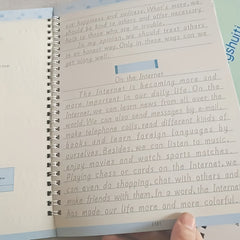 our happiness and success. What's more, we
should be kind to others and offer necessary
help to those who are in trouble.
In my opinion, we should treat others
in a polite way. Only in these ways can we
get along well.
On the Internet
The Internet is becoming more and
more important in our daily life. On the
Internet, we can learn news from all over the
world. We can also send messages by e-mail,
make telephone calls, read different kinds of
books and learn foreign languages by
ourselves. Besides, we can listen to music,
enjoy movies and watch sports matches.
Playing chess or cards on the Internet, we
can even do shopping, chat with others and
make friends with them. In a word, the Internet
has made our life more and more colorful.
yshuiti